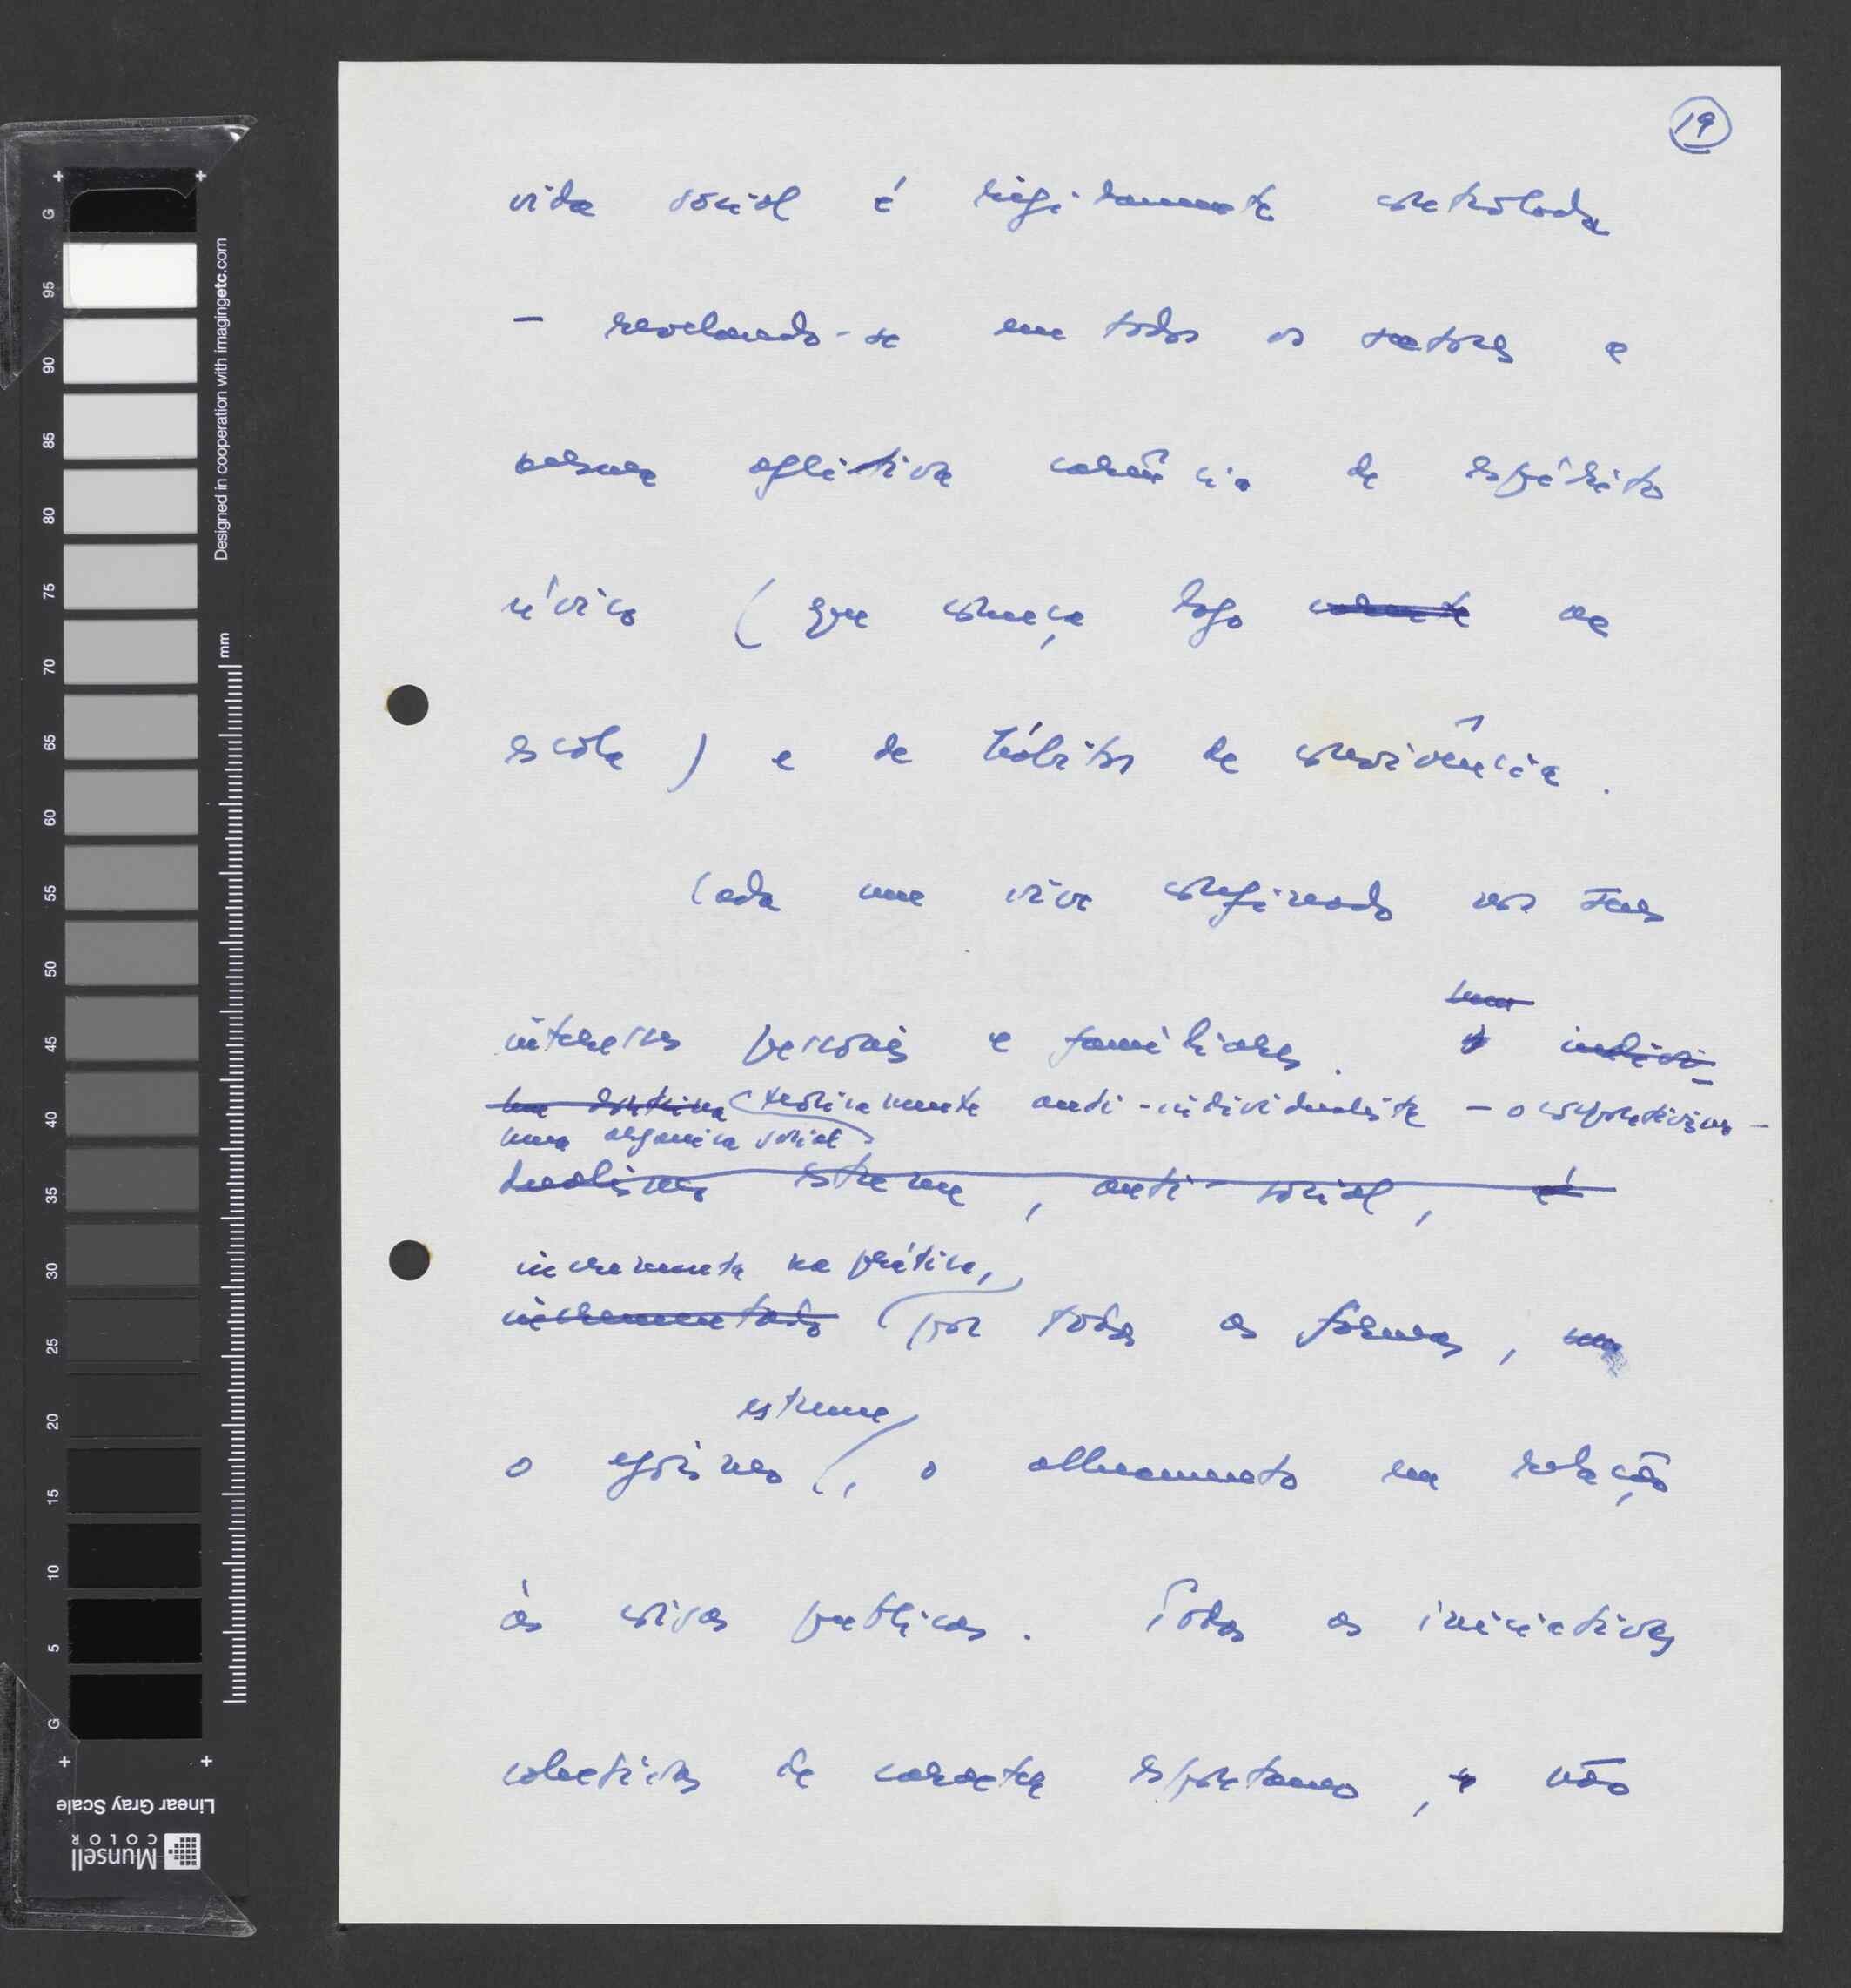 19
vida social é rigidamente controlada
– revelando-se em todos os sectores a
mesma aflitiva carência de espírito
cívico ( que começa logo na
escola ) e de hábitos de convivência .
Cada um vive confinado nos seus
interesses pessoais e familiares . indivi-
teoricamente anti-individualista – o corporativismo –
uma orgânica social
dualismo estreme , anti-social , é
incrementa na prática,
incrementado por todas as formas ,
estreme
o egoísmo , o alheamento em relação
às coisas públicas . Todas as iniciativas
colectivas de carácter espontâneo , e não
G 5 10 15 20 25 30 35 40 45 50 55 60 65 70 75 80 85 90 95 G
mm
Designed in cooperation with imagingetc.com
Linear Gray Scale
Munsell
COLOR